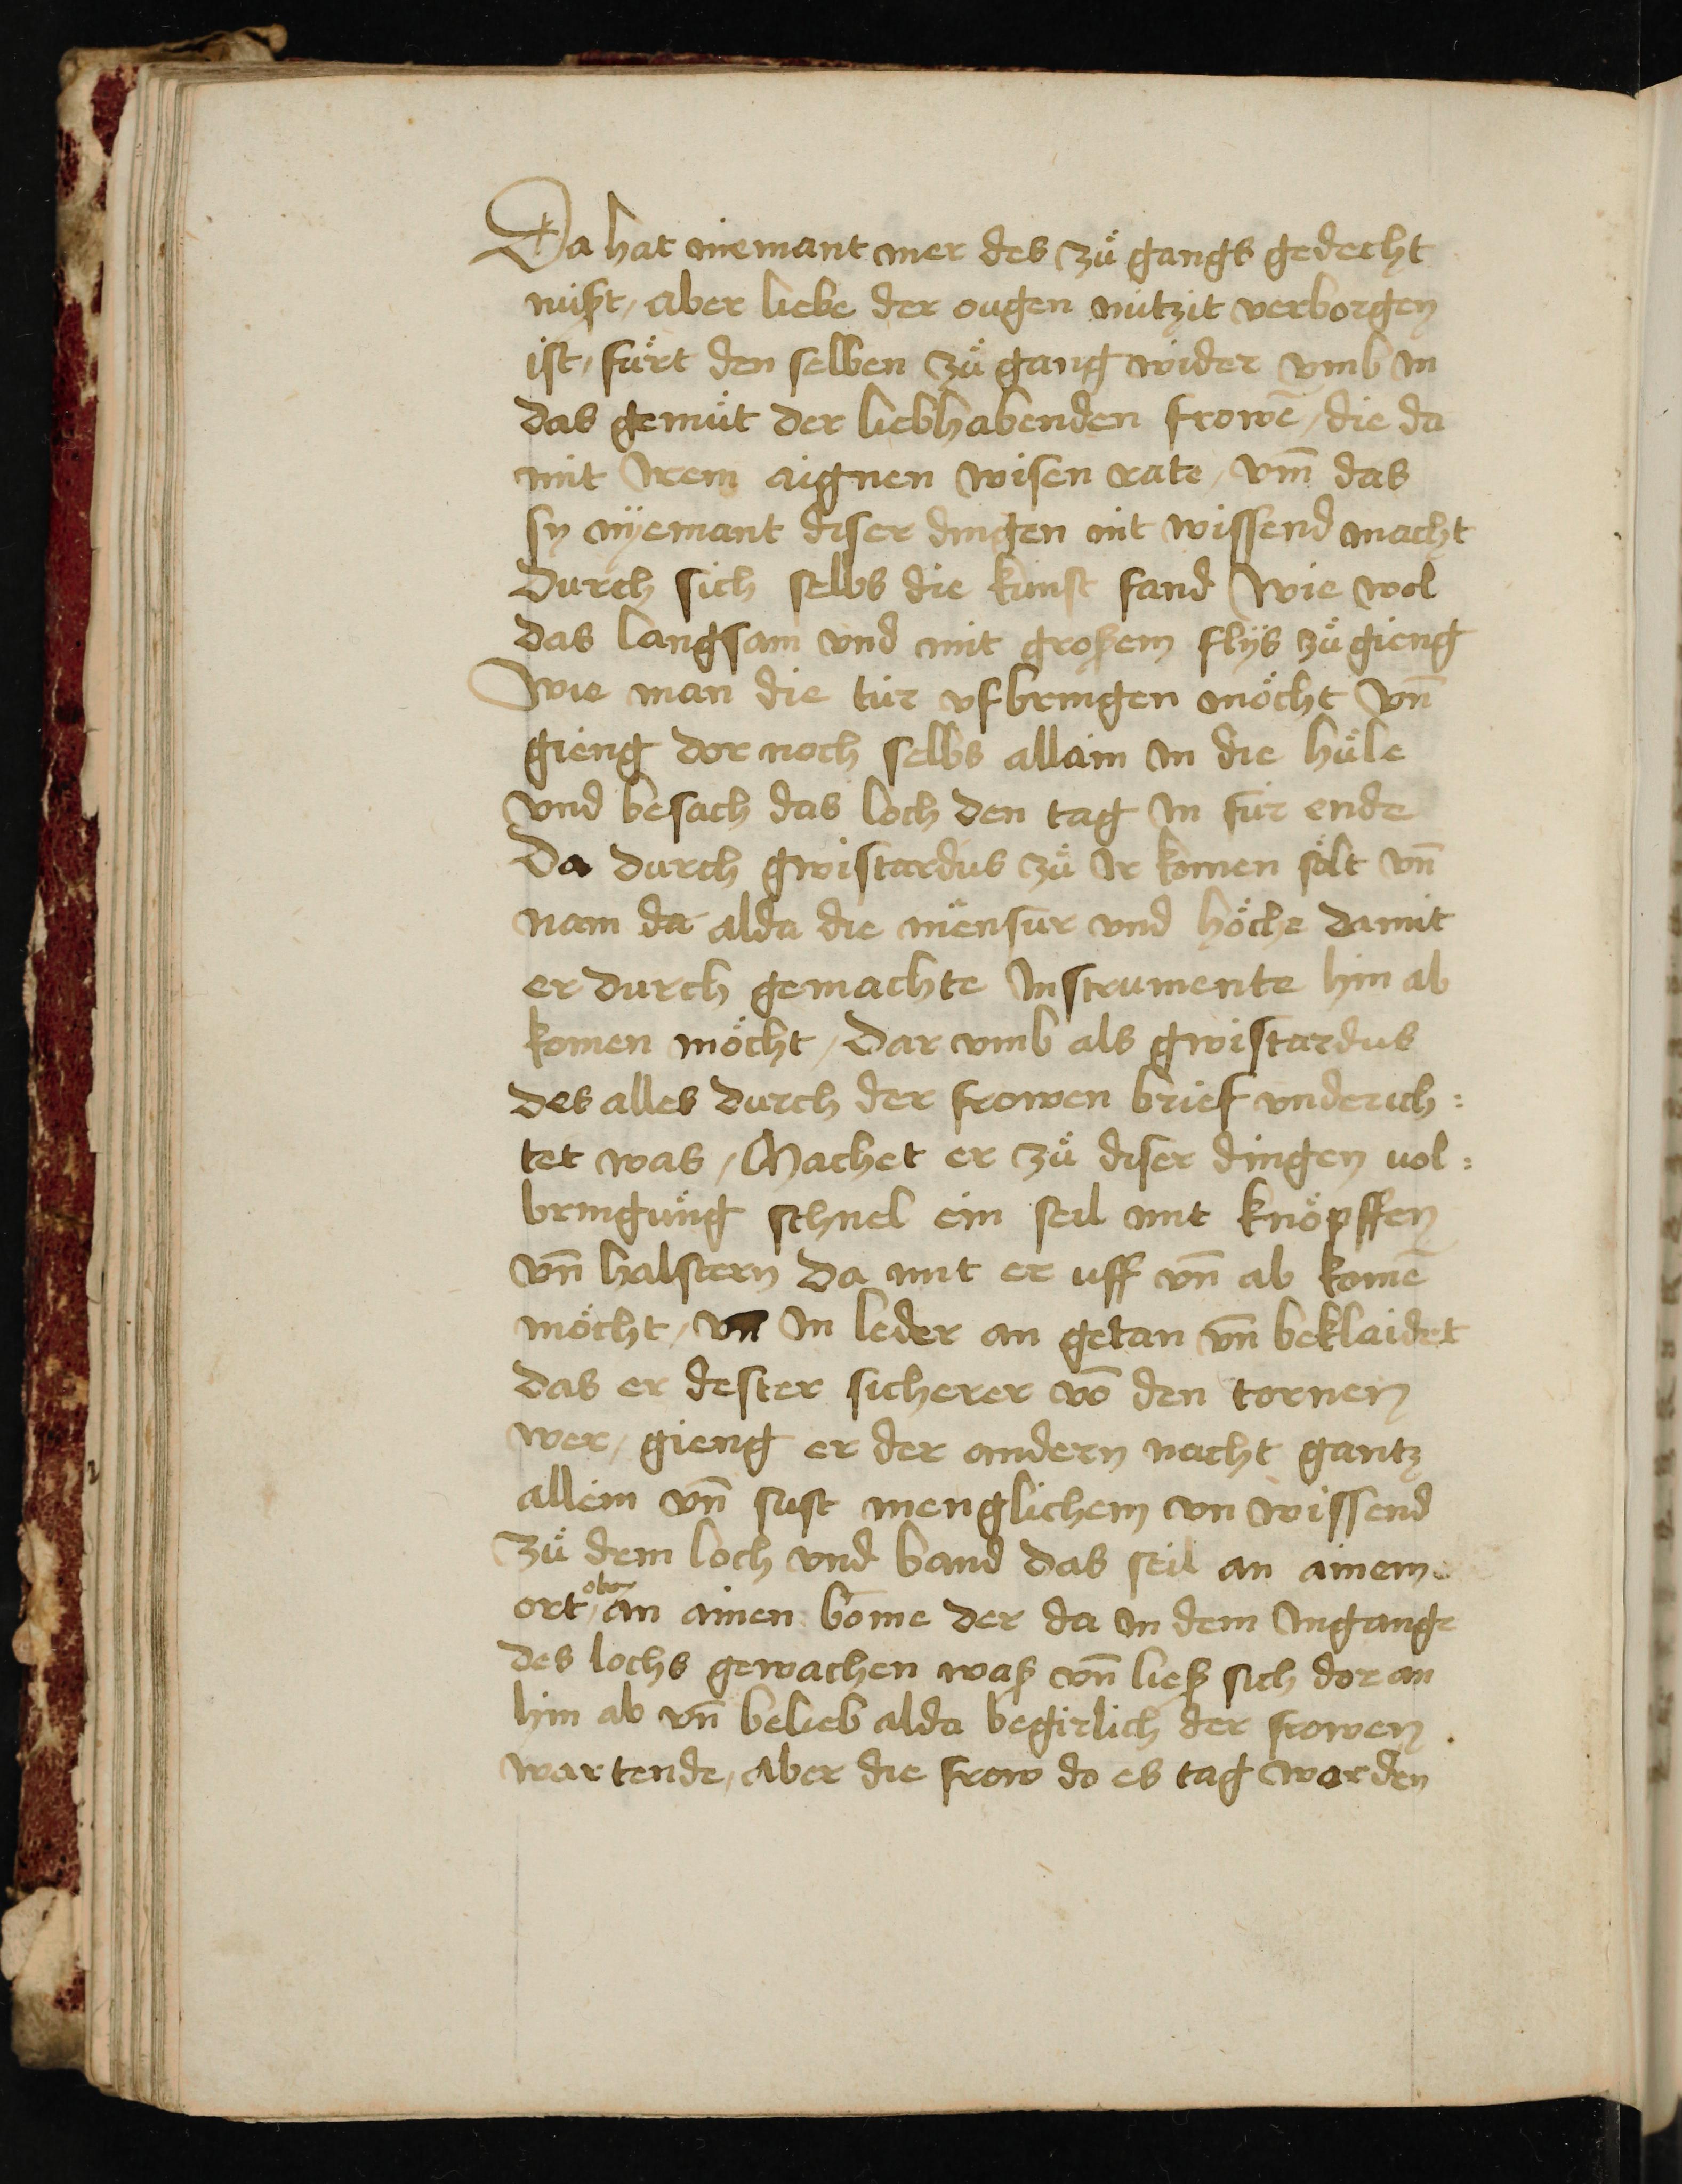 Da hat niemant mer des zů gangs gedecht
nußt, aber liebe der ougen nützit verborgen
ist, fürt den selben zů gang wider vmb in
das gemüt der liebhabenden frowē, die da
mit irem aignen wisen rate, vm̄ das
sy nÿemant diser dingen nit wissend macht
durch sich selbs die kunst fand Wie wol
das langsam vnd mit großem flÿs zů gieng
Wie man die tür vfbringen möcht vn̄
gieng dor noch selbs allain in die hüle
vnd besach das loch den tag in für ende
Da durch gwistardus zů ir komen sölt vn̄
nam da alda die mensur vnd höche damit
er durch gemachte instrumente hin ab
komen möcht, Dar vmb als gwistardus
des alles durch der frowen brief vnderich:
tet was, Machet er zů diser dingen vol:
bringung schnel ein seil mit knöpffen
vn̄ halstern da mit er uff vn̄ ab komē
möcht, vn in leder an getan vn̄ beklaidet
das er dester sicherer vō den tornen
wer, gieng er der andern nacht gantz
allein vn̄ sust menglichem vn wissend
zů dem loch vnd band das seil an ainem
ort, oben an ainen bome der da in dem ingange
des lochs gewachen waß vn̄ ließ sich dor an
hin ab vn̄ belieb alda begirlich der frowen
wartende, aber die frow do es tag warden